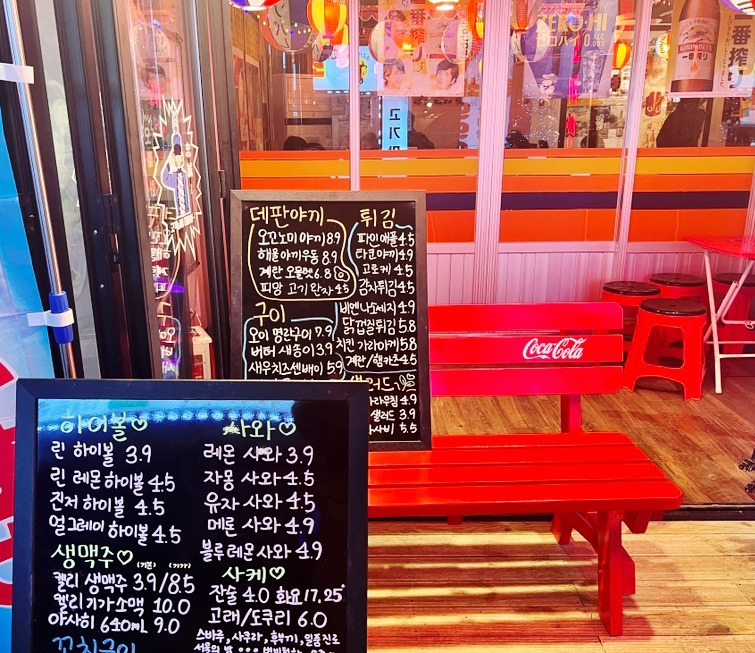 데판야끼
오꼬노미야끼 8.9
해물야끼우동 8.9
계란 오믈렛 6.8
피망 고기 완자 4.5
구이
오이 명란구이 7.9
버터 새송이 3.9
새우치즈센베이 5.9
튀김
파인애플 4.5
타코야끼 4.9
고로케 4.5
감자튀김 4.5
비엔나소세지 4.9
닭껍질튀김 5.8
치킨 가라아게 5.8
계란/햄카츠 4.5
샐러드 3.9
5.5
하이볼♡
린 하이볼 3.9
린 레몬하이볼 4.5
진저 하이볼 4.5
얼그레이 하이볼 4.5
생맥주♡
(기본) (기가)
켈리 생맥주 3.9/8.5
켈리기가소맥 10.0
아사히 640mL 9.0
꼬치구이
사와♡
레몬 사와 3.9
자몽 사와 4.5
유자 사와 4.5
메론 사와 4.9
블루레몬사와 4.9
사케♡
잔술 4.0 화요 17, 25°
고래/도쿠리 6.0
Coca-Cola
고기
一番搾り
KIRIN
一番搾り